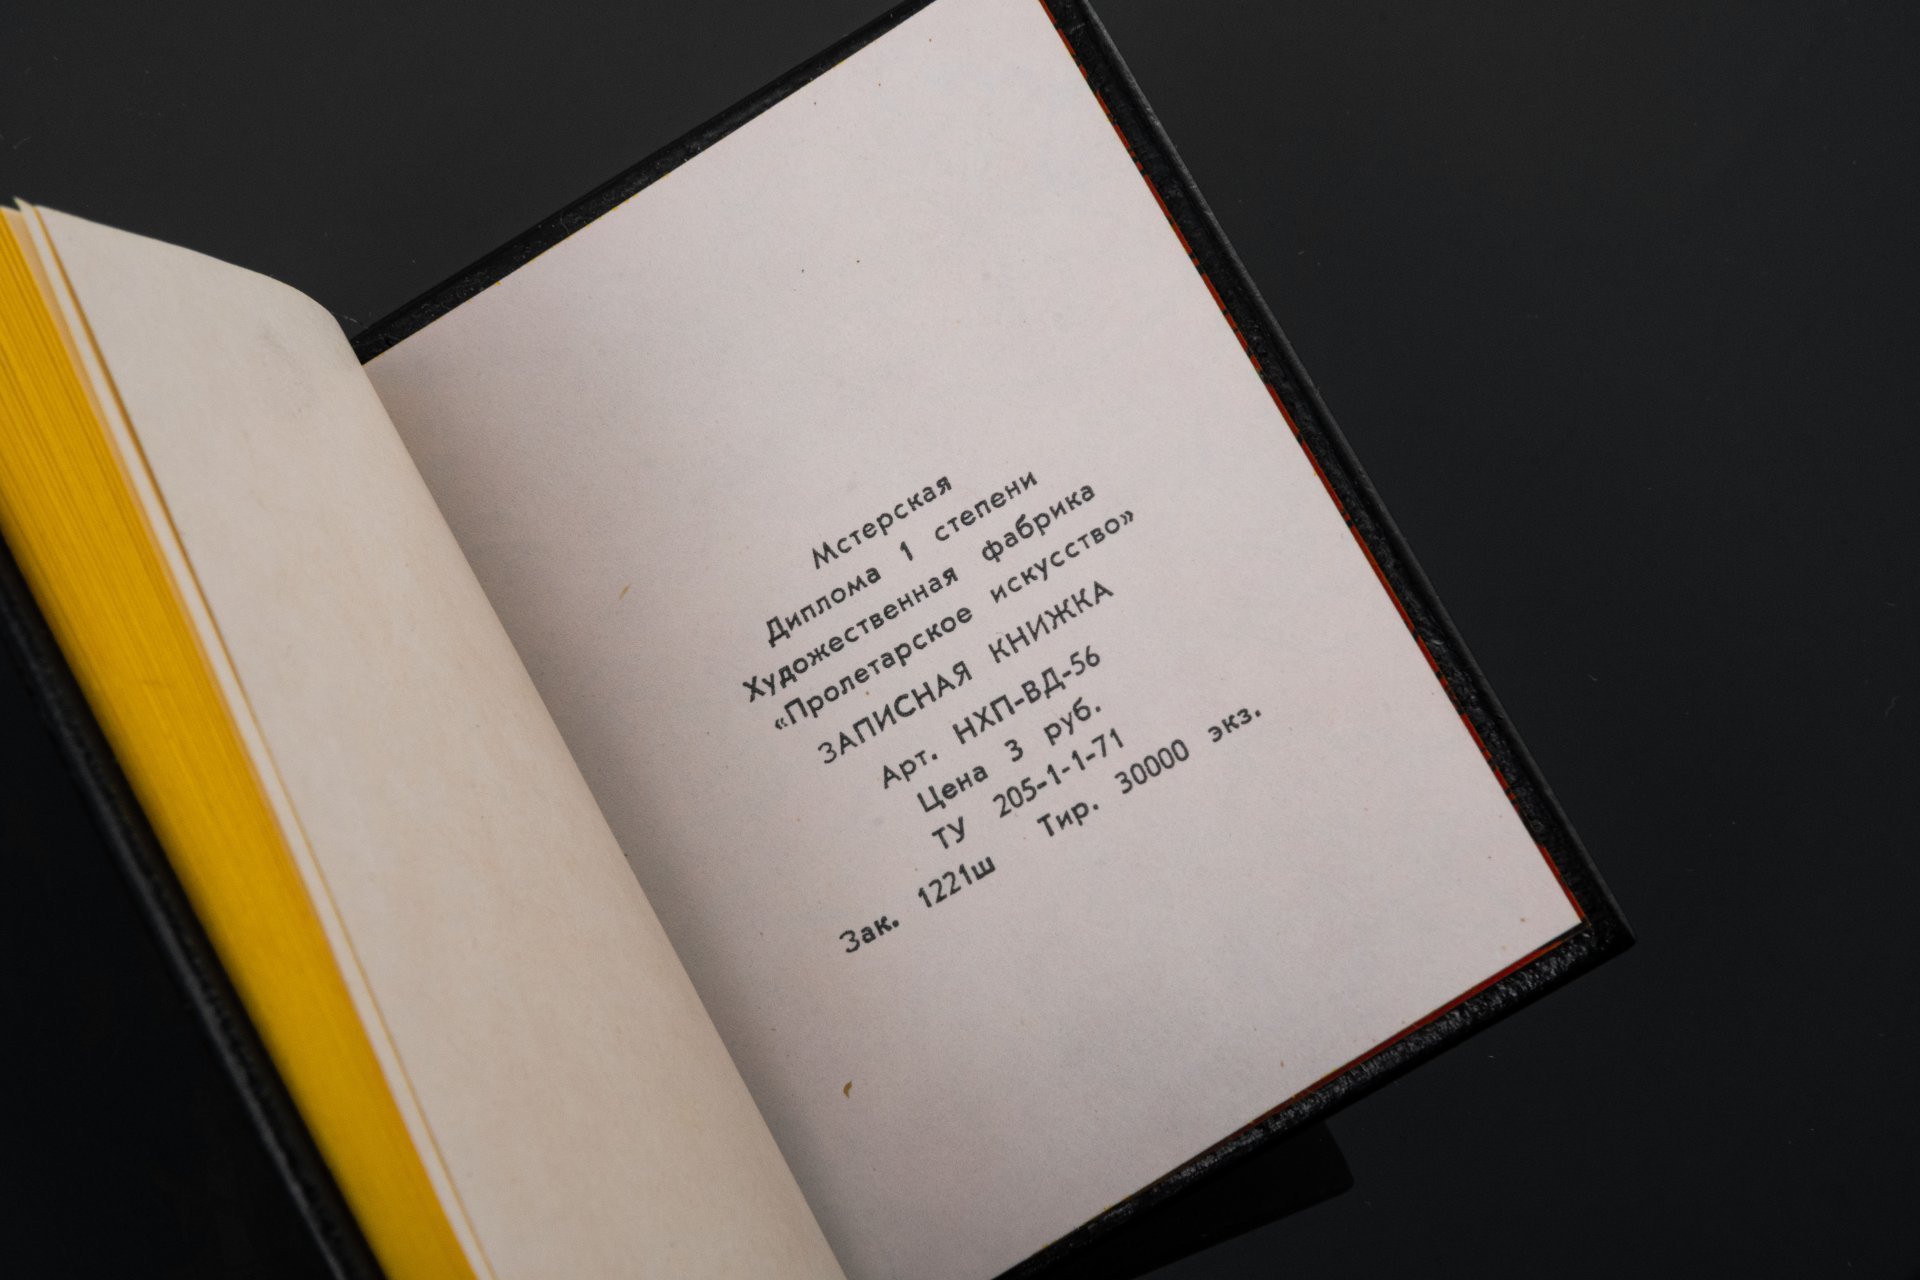 Мстерская
Диплома 1 степени
Художественная фабрика
«Пролетарское искусство»
ЗАПИСНАЯ КНИЖКА
Арт. НХП-ВД-56
Цена 3 руб.
ТУ 205-1-1-71
Зак. 1221ш Тир. 30000 экз.